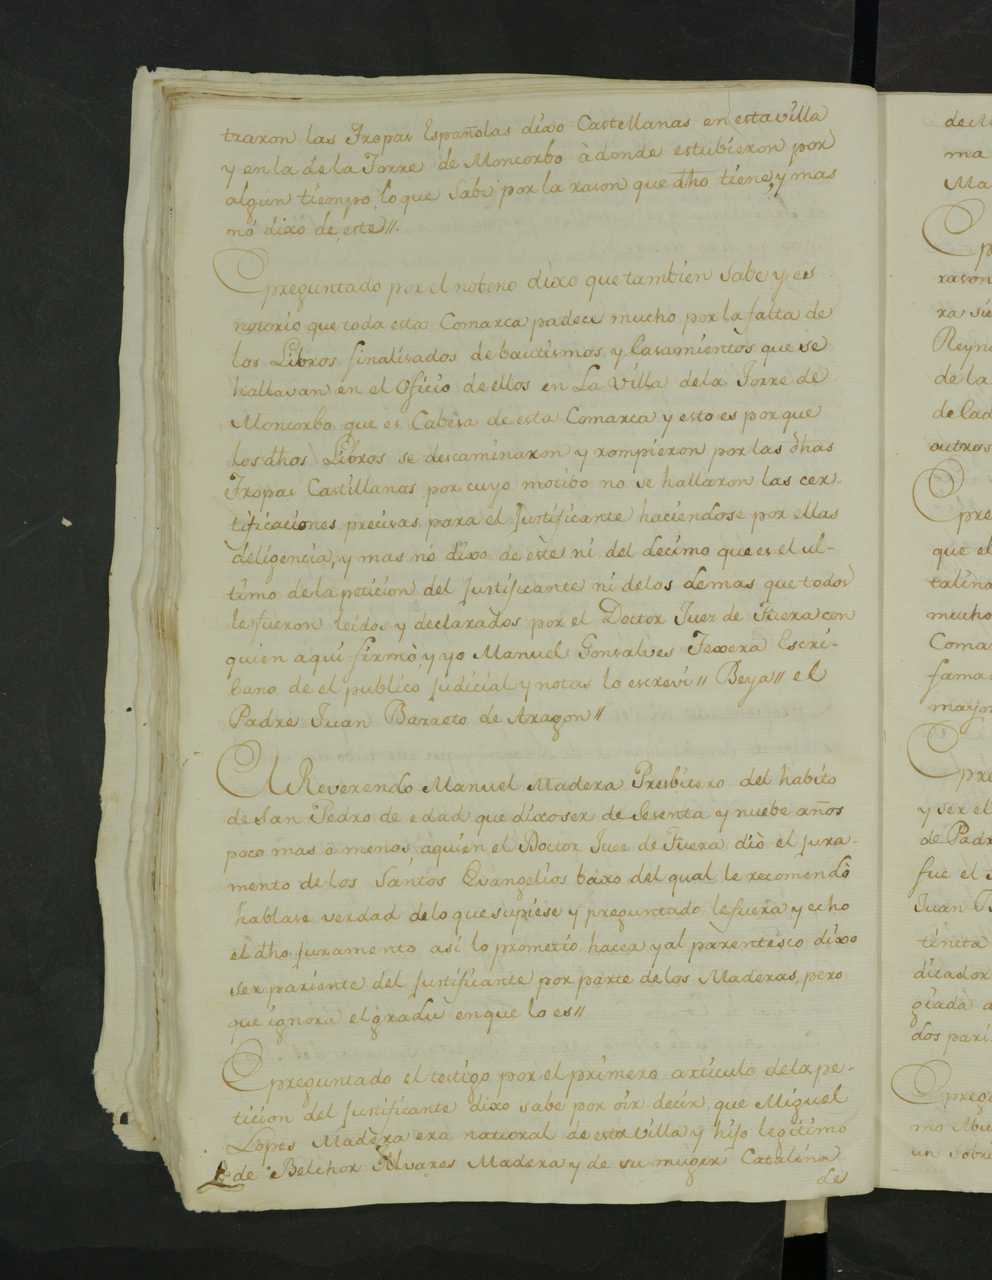 traron las Tropas Españolas dixo Castellanas en esta villa
y en la de la Torre de Moncorbo à donde estubieron por
algun tiempo, lo que sabe por la rason que dho tiene, y mas
nó dixo de este //.
E preguntado por el nobeno dixo que tambien sabe y es
notorio que toda esta Comarca padece mucho por la falta de
los Libros finalisados de bautismos, y Casamientos que se
hallavan en el Oficio de ellos en La Villa de la Torre de
Moncorbo que es Cabesa de esta Comarca y esto es porque
los dhos Libros se descaminaron y rompieron por las dhas
Tropas Castillanas por cuyo motibo no se hallaron las cer-
tificaciones precisas para el Justificante haciendose por ellas
deligencia, y mas nó dixo de este ni del decimo que es el ul-
timo de la peticion del Justificante ni de los demas que todos
le fueron leidos y declarados por el Doctor Juez de Fuera con
quien aqui firmò, y yo Manuel Gonsalves Texera Escri-
bano de el publico Judicial y notas lo escrevi // Beya // el
Padre Juan Barreto de Aragon //
El Reverendo Manuel Madera Presbitero del habito
de San Pedro de edad que dixo ser de Sesenta y nuebe años
poco mas o menos, aquien el Doctor Juez de Fuera diò el Jura-
mento de los Santos Evangelios baxo del qual le recomendò
hablase verdad de lo que supiese y preguntado le fuera y echo
el dho Juramento asi lo prometio hacer y al parentesco dixo
ser pariente del Justificante por parte de los Maderas, pero
que ignora el gradu en que lo es //
E preguntado el testigo por el primero articulo de la pe-
ticion del Justificante dixo sabe por oir decir, que Miguel
Lopes Madera era natural de esta Villa y hijo legitimo
de Belchor Alvares Madera y de su muger Catalina
de
de M
ma
Ma
E p
rason
ra si
Reyn
de la
de Cad
autros
E pre
que el
talina
mucho
Comar
fama
mayor
E pre
y ser el
de Padr
fue el
Juan B
tenita
dicador
giada a
dos pari
E pregu
mo Abu
un sobre